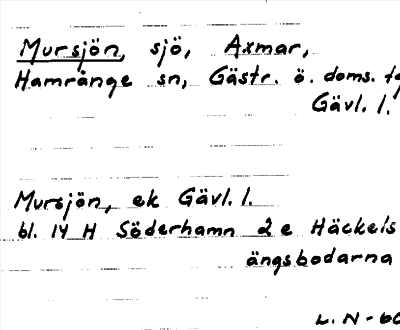 Mursjön, sjö, Axmar,
Hamrånge sn, Gästr. ö. doms.
Gävl. l.
Mursjön, ek Gävl. l.
bl. 14 H Söderhamn 2 e Häckels
ängsbodarna
L. N - 60